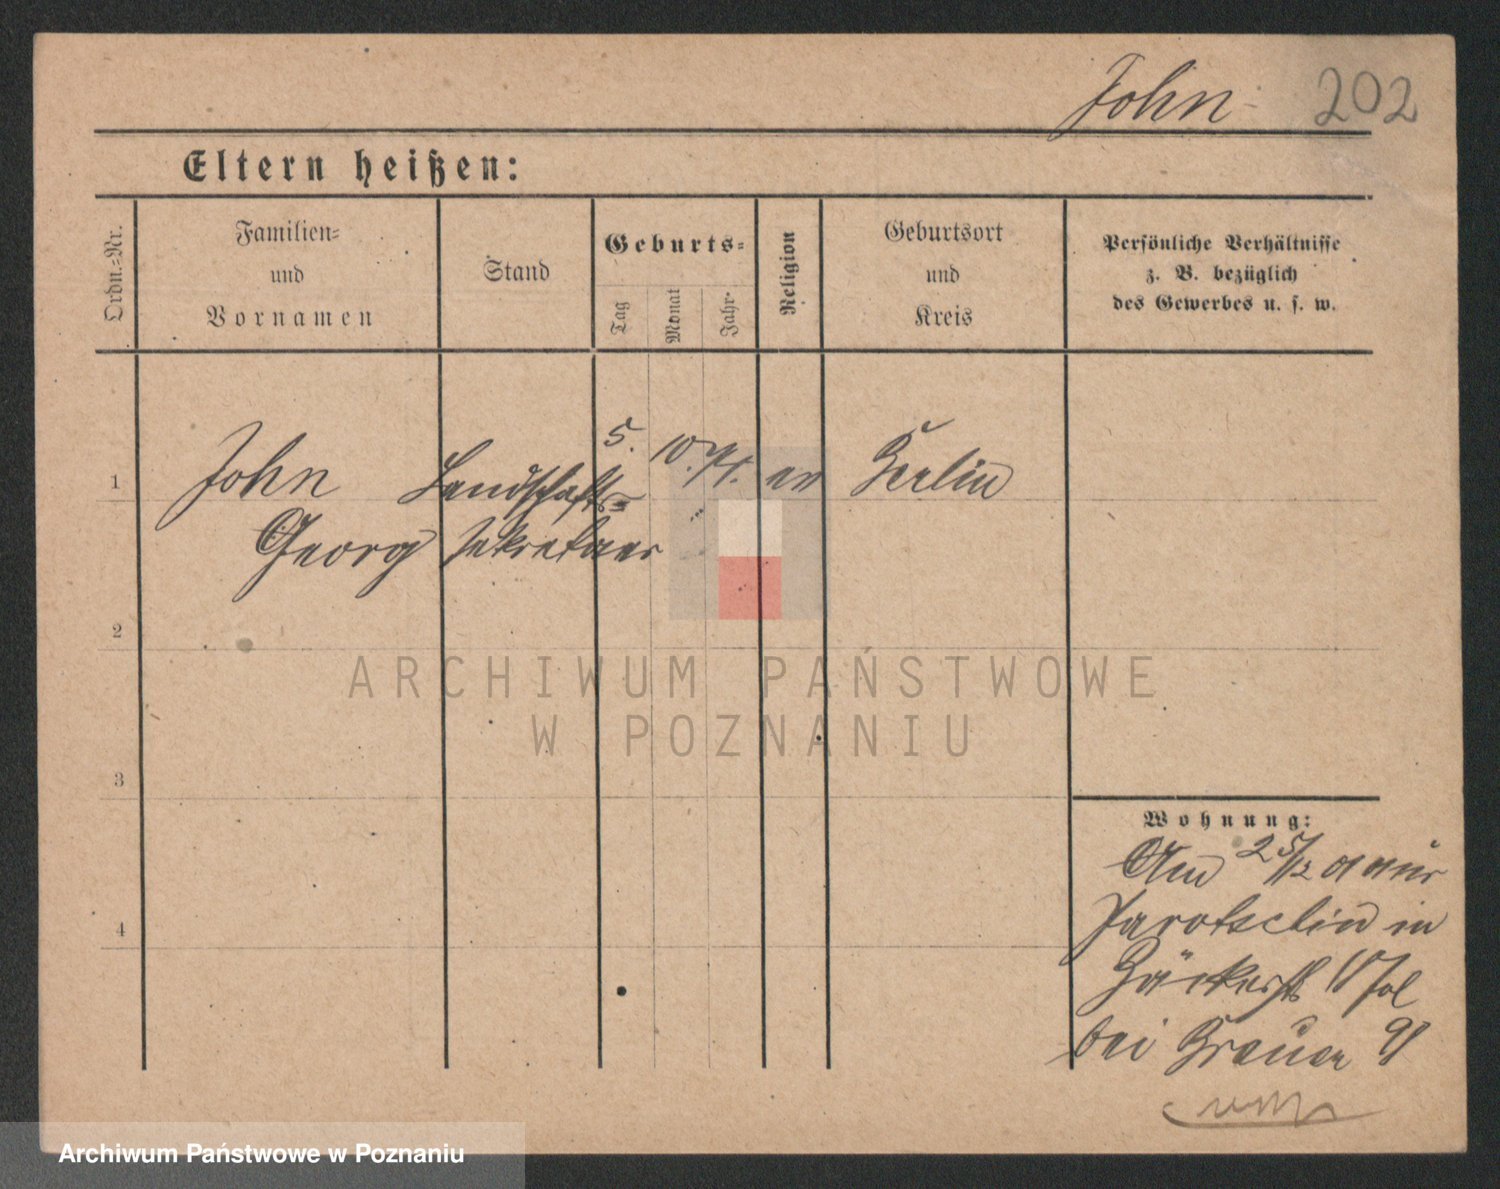 John 202
Eltern heißen:
Ordn.-Nr.
Familien-
und
Vornamen
Stand
Geburts-
Tag
Monat
Jahr-
Religion
Geburtsort
und
Kreis
Persönliche Verhältnisse
z. B. bezüglich
des Gewerbes u. s. w.
1 John Landschafts- 5. 10. 71. ev Berlin
Georg sekretaer
2
3
4
Wohnung:
Am 25/12
Jarotschin in
Bäckerstr
bei Brauer
ARCHIWUM PAŃSTWOWE
W POZNANIU
Archiwum Państwowe w Poznaniu